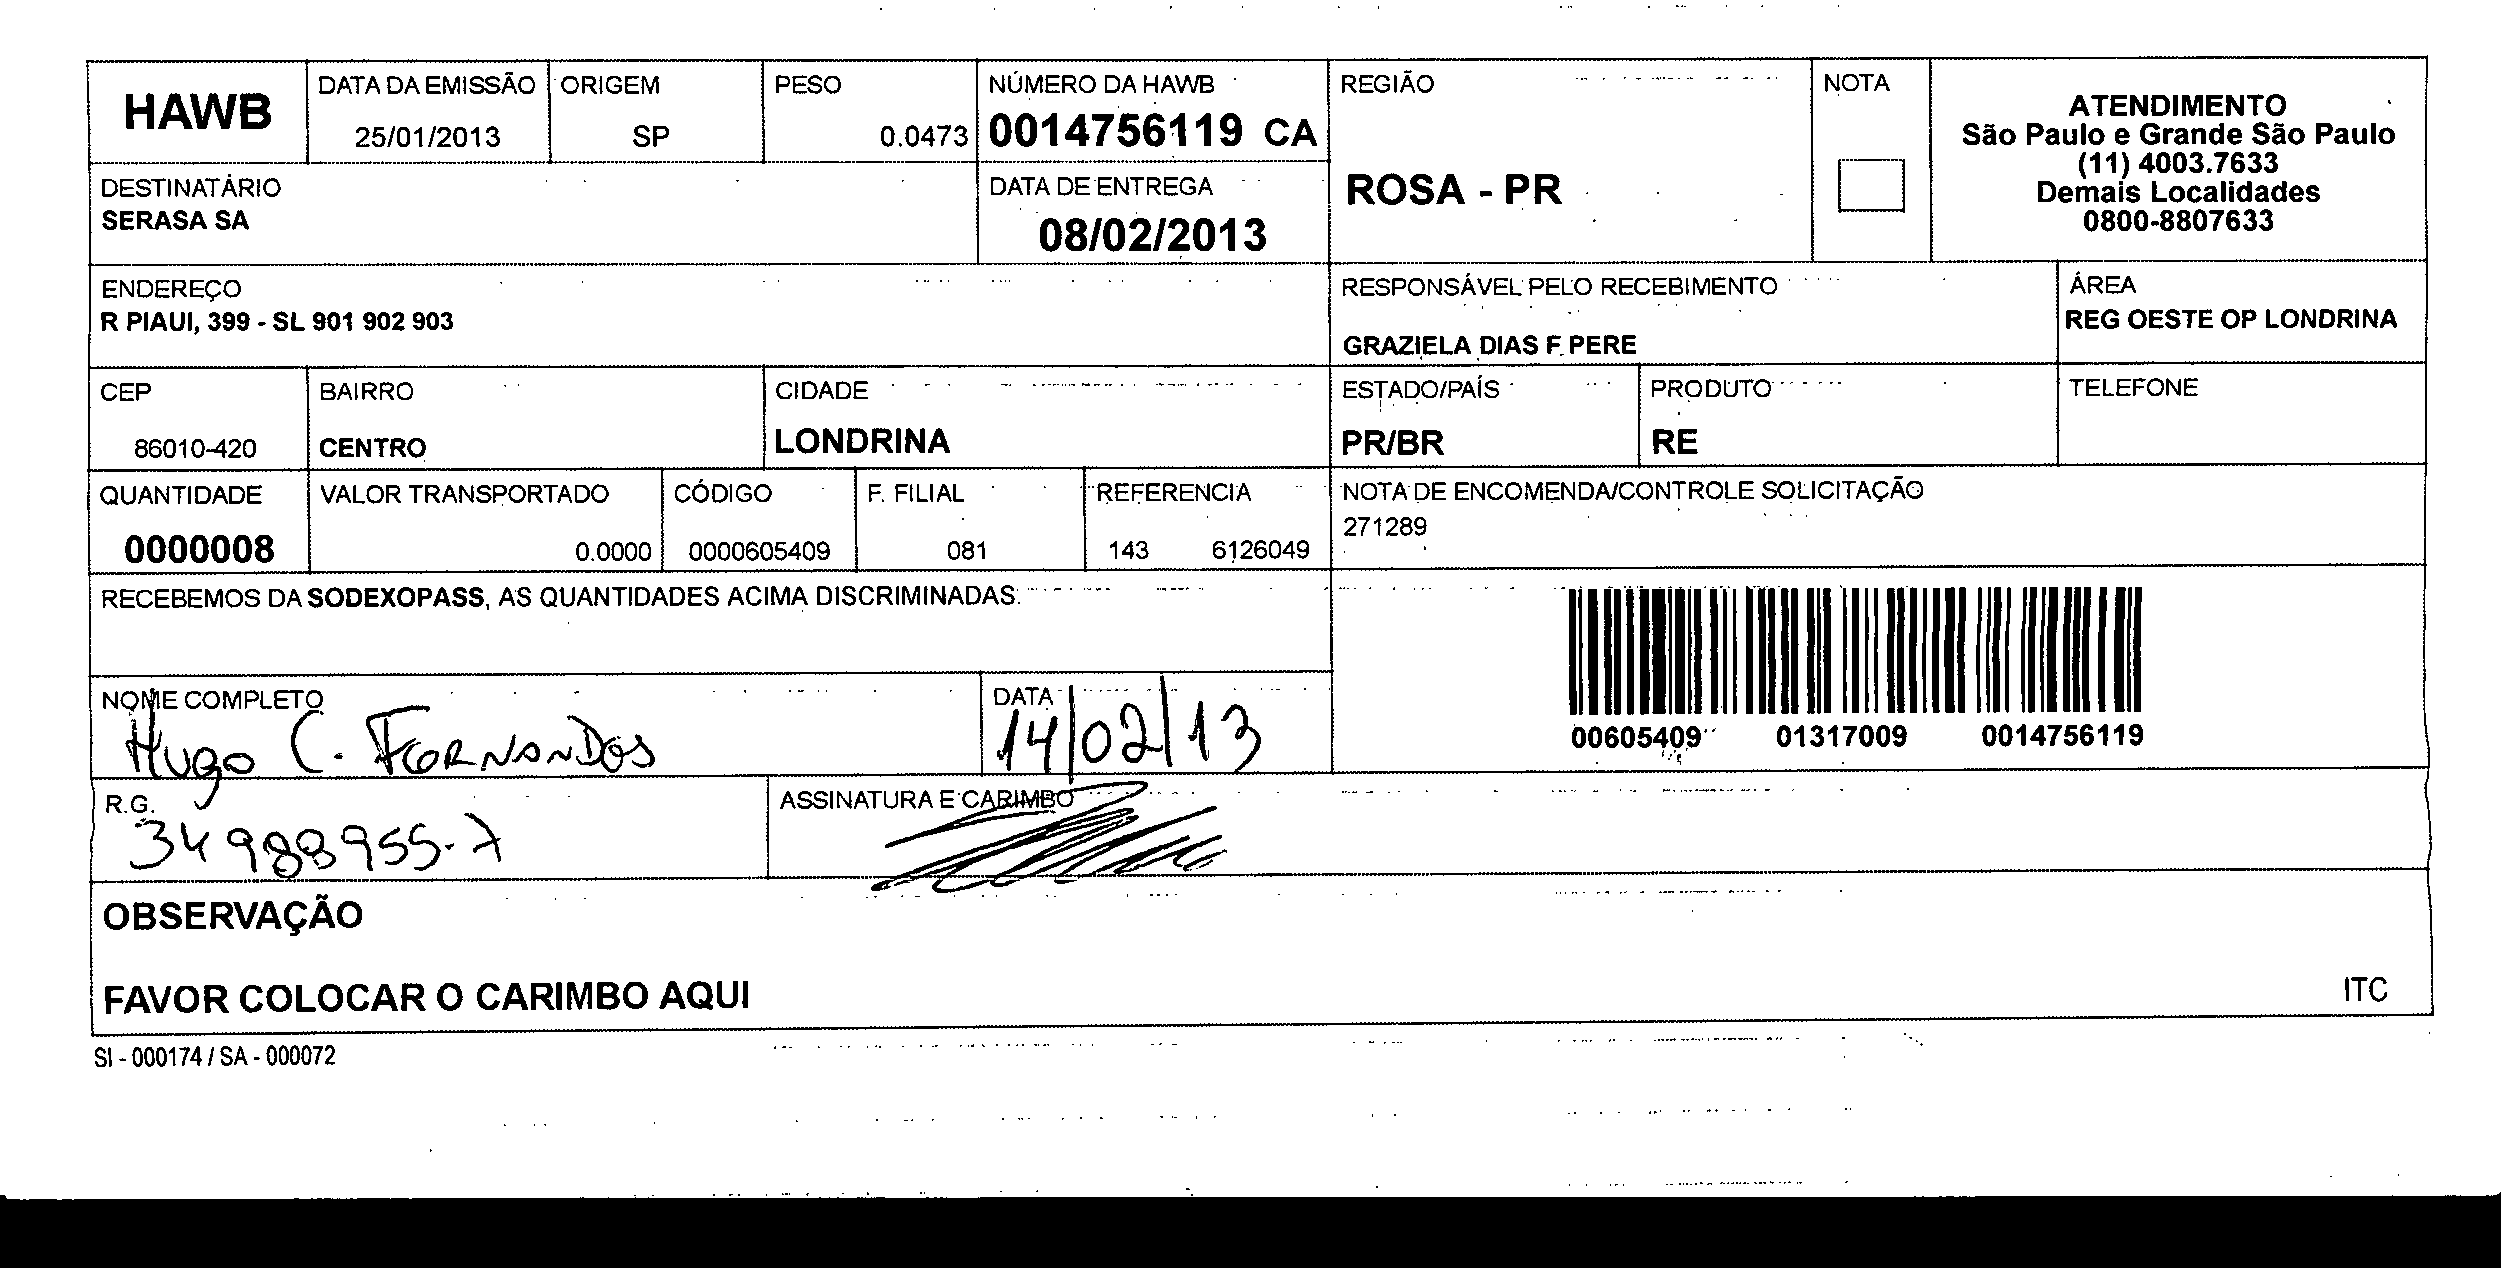 HAWB
DATA DA EMISSÃO
25/01/2013
ORIGEM
SP
PESO
0.0473
NÚMERO DA HAWB
0014756119 CA
REGIÃO
ROSA - PR
NOTA
ATENDIMENTO
São Paulo e Grande São Paulo
(11) 4003.7633
Demais Localidades
0800-8807633
DESTINATÁRIO
SERASA SA
DATA DE ENTREGA
08/02/2013
ENDEREÇO
R PIAUI, 399 - SL 901 902 903
RESPONSÁVEL PELO RECEBIMENTO
GRAZIELA DIAS F PERE
ÁREA
REG OESTE OP LONDRINA
CEP
86010-420
BAIRRO
CENTRO
CIDADE
LONDRINA
ESTADO/PAÍS
PR/BR
PRODUTO
RE
TELEFONE
QUANTIDADE
0000008
VALOR TRANSPORTADO
0.0000
CÓDIGO
0000605409
F. FILIAL
081
REFERENCIA
143 6126049
NOTA DE ENCOMENDA/CONTROLE SOLICITAÇÃO
271289
RECEBEMOS DA SODEXOPASS, AS QUANTIDADES ACIMA DISCRIMINADAS.
00605409 01317009 0014756119
NOME COMPLETO
Hugo C. FERNANDES
DATA
14/02/13
R.G.
34988955-7
ASSINATURA E CARIMBO
OBSERVAÇÃO
FAVOR COLOCAR O CARIMBO AQUI
ITC
SI - 000174 / SA - 000072